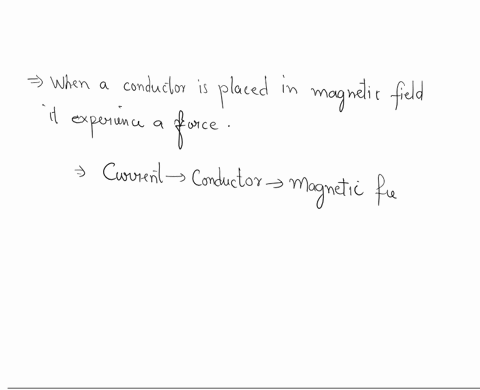 ⇒ When a conductor is placed in magnetic field
it experience a force.
⇒ Current → Conductor → Magnetic fie